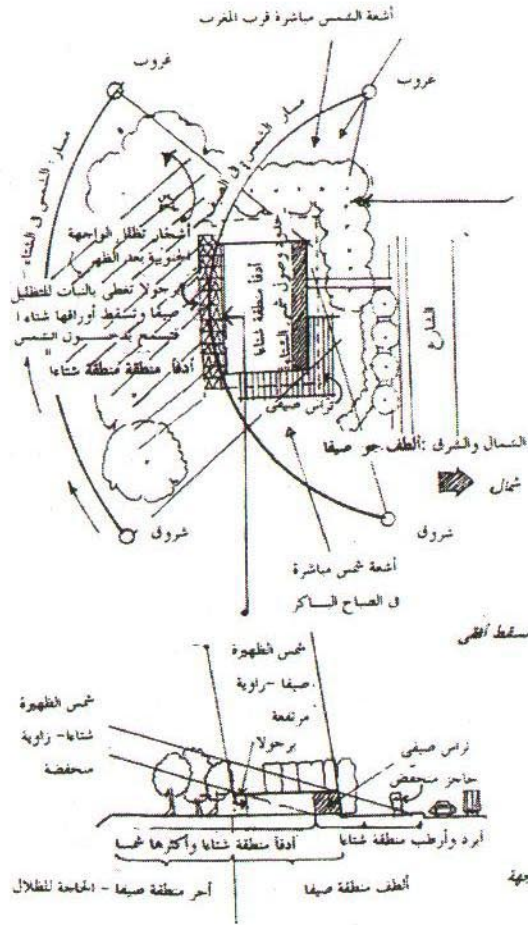 أشعة الشمس مباشرة قرب المغرب
غروب
غروب
مسار الشمس في الشتاء
مسار الشمس في الصيف
أشجار تظلل الواجهة
الجنوبية بعد الظهر
برجولا تغطى بالنبات للتظليل
صيفا وتسقط أوراقها شتاء ا
فتسمح بدخول الشمس
أدفأ منطقة منطقة شتاءا
أدفأ منطقة شتاءا
وصول شمس الشتاء
الشارع
تراس صيفى
الشمال والشرق : ألطف جو صيفا
شمال
شروق
شروق
أشعة شمس مباشرة
فى الصباح الباكر
مسقط أفقى
شمس الظهيرة
صيفا - زاوية
مرتفعة
برجولا
شمس الظهيرة
شتاءا - زاوية
منخفضة
تراس صيفى
حاجز منخفض
أبرد وأرطب منطقة شتاءا
أدفأ منطقة شتاءا وأكثرها شمسا
ألطف منطقة صيفا
أحر منطقة صيفا - الحاجة للظلال